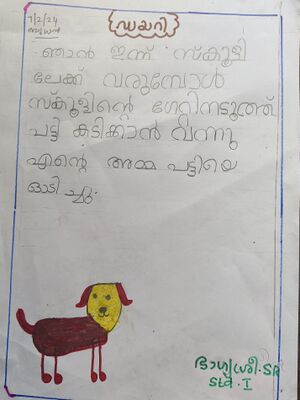 7/2/24
ബുധൻ
ഡയറി
ഞാൻ ഇന്ന് സ്കൂളി
ലേക്ക് വരുമ്പോൾ
സ്കൂളിന്റെ ഗേറ്റിനടുത്ത്
പട്ടി കടിക്കാൻ വന്നു
എന്റെ അമ്മ പട്ടിയെ
ഓടിച്ചു.
ഭാഗ്യശ്രീ.SR
Std. I